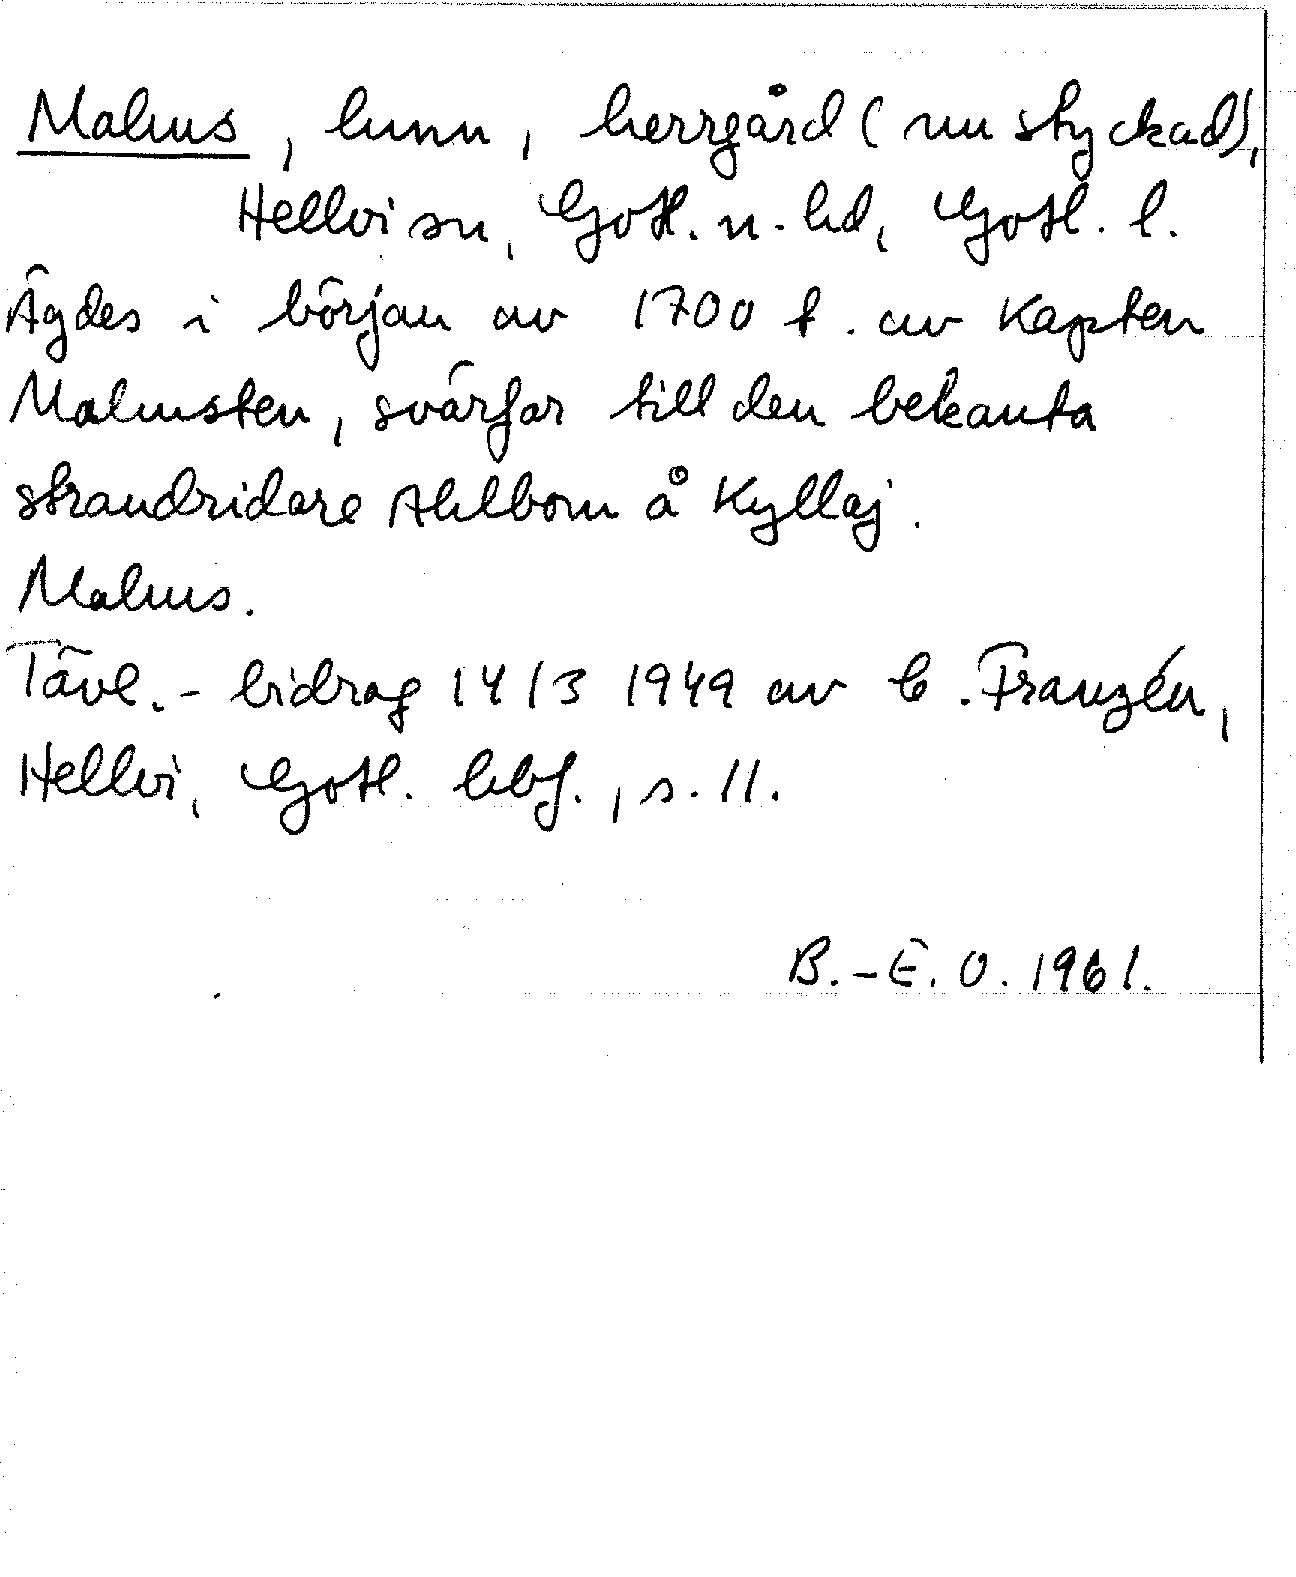 Malms, hmn, herrgård (nu styckad),
Hellvi sn, Gotl. n. hd, Gotl. l.
Ägdes i början av 1700 t. av Kapten
Malmsten, svärfar till den bekanta
strandridare Ahlbom å Kyllaj.
Malms.
Tävl.- bidrag 14/3 1949 av G. Franzén,
Hellvi, Gotl. hbf., s. 11.
B.-E. O. 1961.